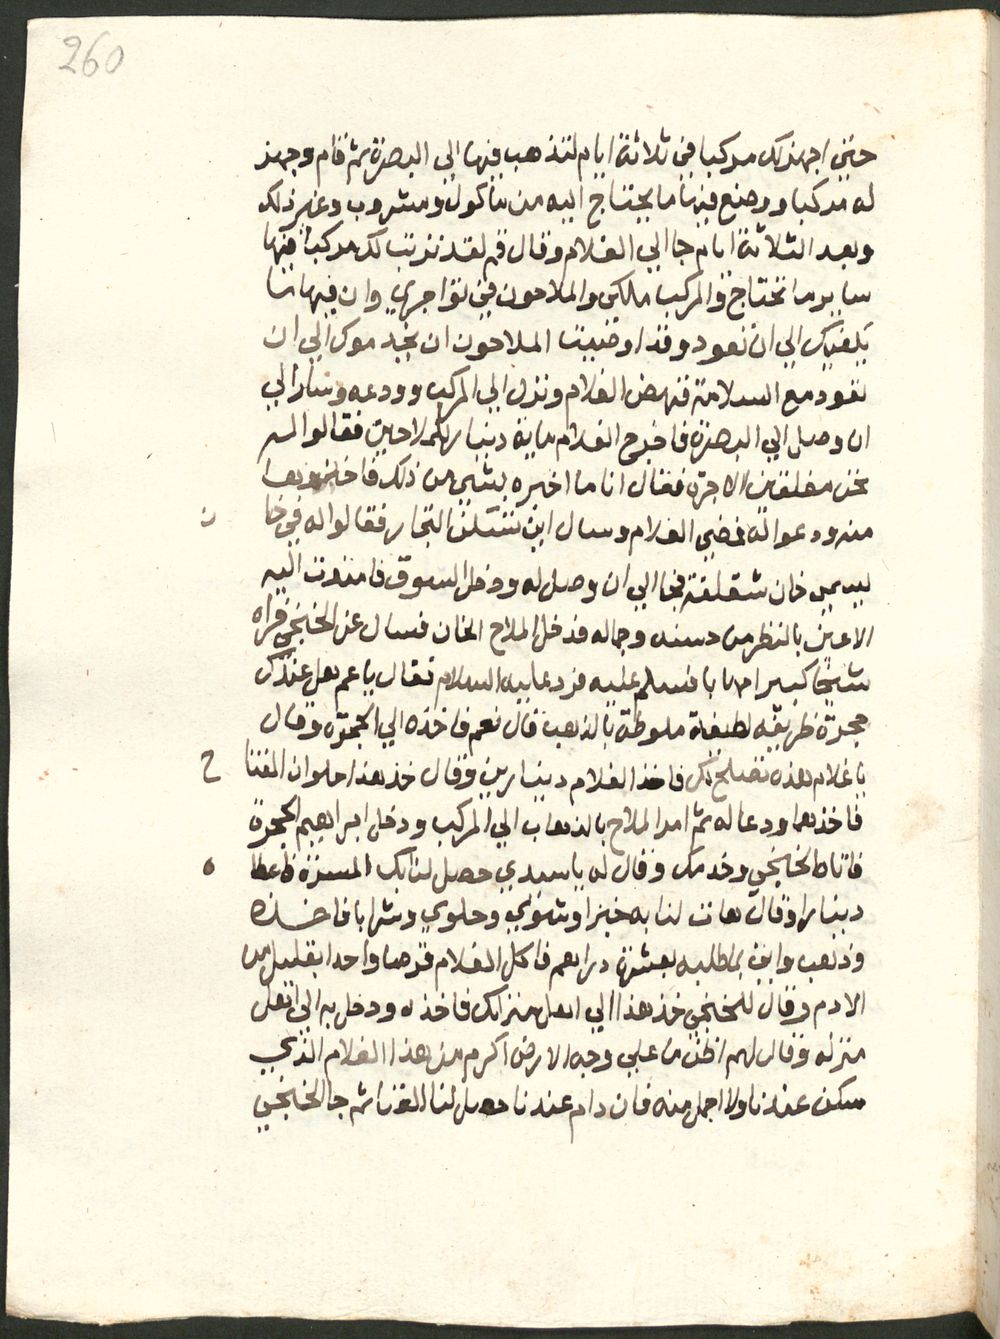 260
حتي اجهز لك مركبا في ثلاثة ايام لتذهب فيها الي البصرة ثم قام وجهز
له مركبا ووضع فيها ما يحتاج اليه من ماكول ومشروب وغير ذلك
وبعد الثلاثة ايام جا الي الغلام وقال قم لقد تزتب لك مركبا فيها
ساير ما تحتاج والمركب ملكي والملاحون في تواجري وان فيها ما
يكفيك الي ان تعود وقد اوصيت الملاحون ان يخدموك الي ان
تعود مع السلامة فنهض الغلام ونزل الي المركب وودعه وسار الي
ان وصل الي البصرة فاخرج الغلام ماية دينار للملاحين فقالوا له
نحن مغلقين الاجرة فقال انا ما اخبره بشي من ذلك فاخذوها
منه ودعوا له فمضي الغلام وسال اين تسكن التجار فقالوا له في خا
ن
يسمي خان فجا الي ان وصل له ودخل السوق فامتدت اليه
الاعين بالنظر من حسنه وجماله فدخل الملاح الخان فسال عن الخنجي فراه
شيخا كبيرا مهابا فسلم عليه فرد عليه السلام فقال يا عم هل عندك
حجرة ظريفه لطيفة ملوطة بالذهب قال نعم فاخذه الي الحجرة وقال
يا غلام هذه تصلح لك فاخذ الغلام دينارين وقال خذ هذا حلوان المفتا
ح
فاخذهما ودعا له ثم امر الملاح بالذهاب الي المركب ودخل ابراهيم الحجرة
فاتاه الخنجي وخدمه وقال له يا سيدي حصل لنا بك المسرة فاعطا
ه
دينارا وقال هات لنا به خبزا وشوي وحلوي وشرابا فاخذه
وذهب واتي بما طلبه بعشرة دراهم فاكل الغلام قرصا واحدا بقليل من
الادم وقال للخنجي خذ هذا الي اهل منزلك فاخذه ودخل به الي اهل
منزله وقال لهم اظن ما علي وجه الارض اكرم من هذا الغلام الذي
سكن عندنا ولا اجمل منه فان دام عندنا حصل لنا الغنا ثم جا الخنجي